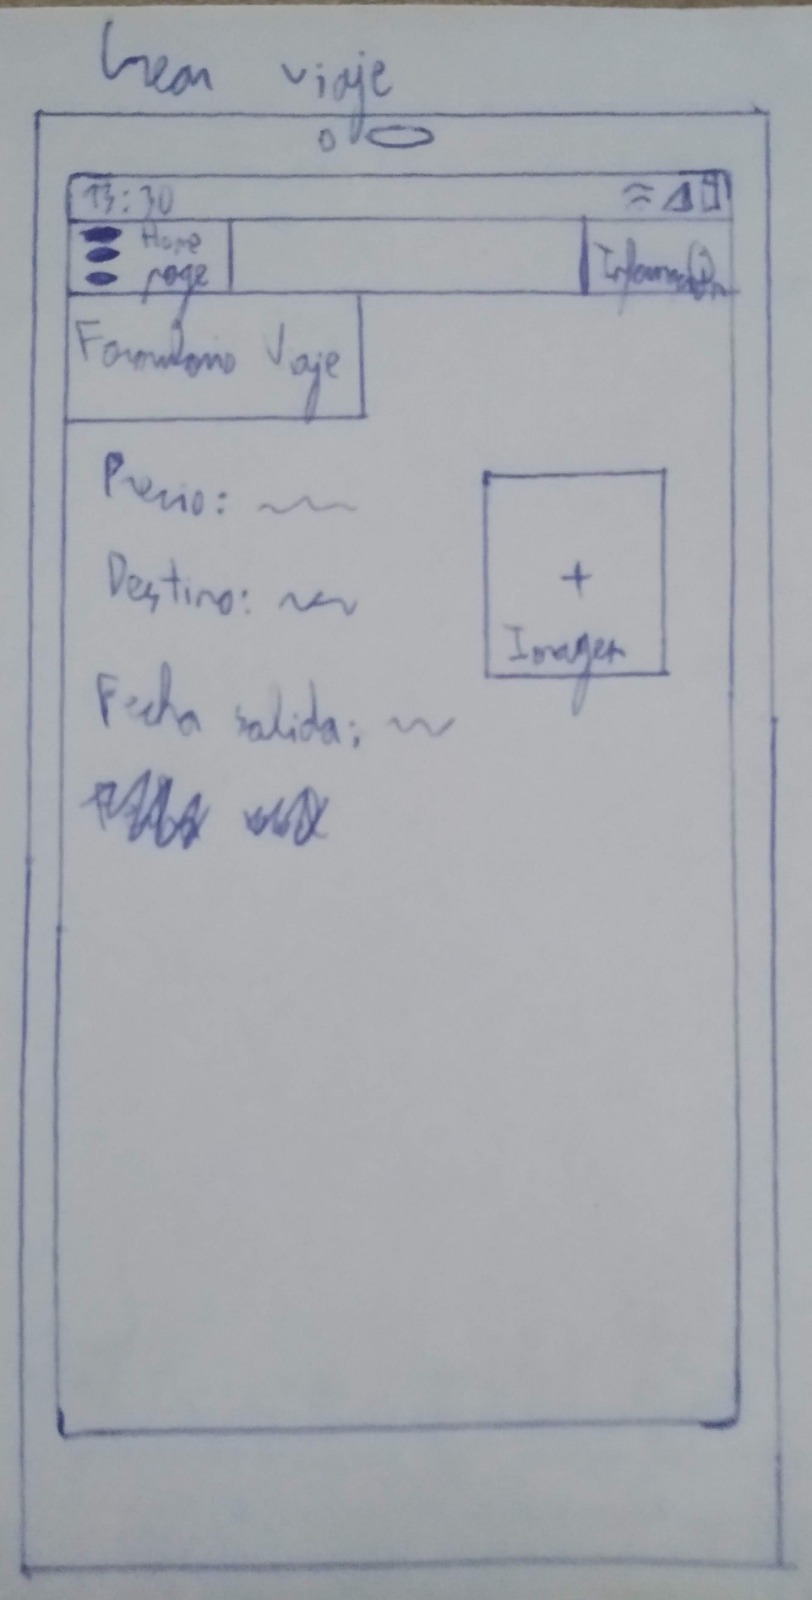 Crear viaje
13:30
Home
page
Información
Formulario Viaje
Precio:
Destino:
+
Imagen
Fecha salida: